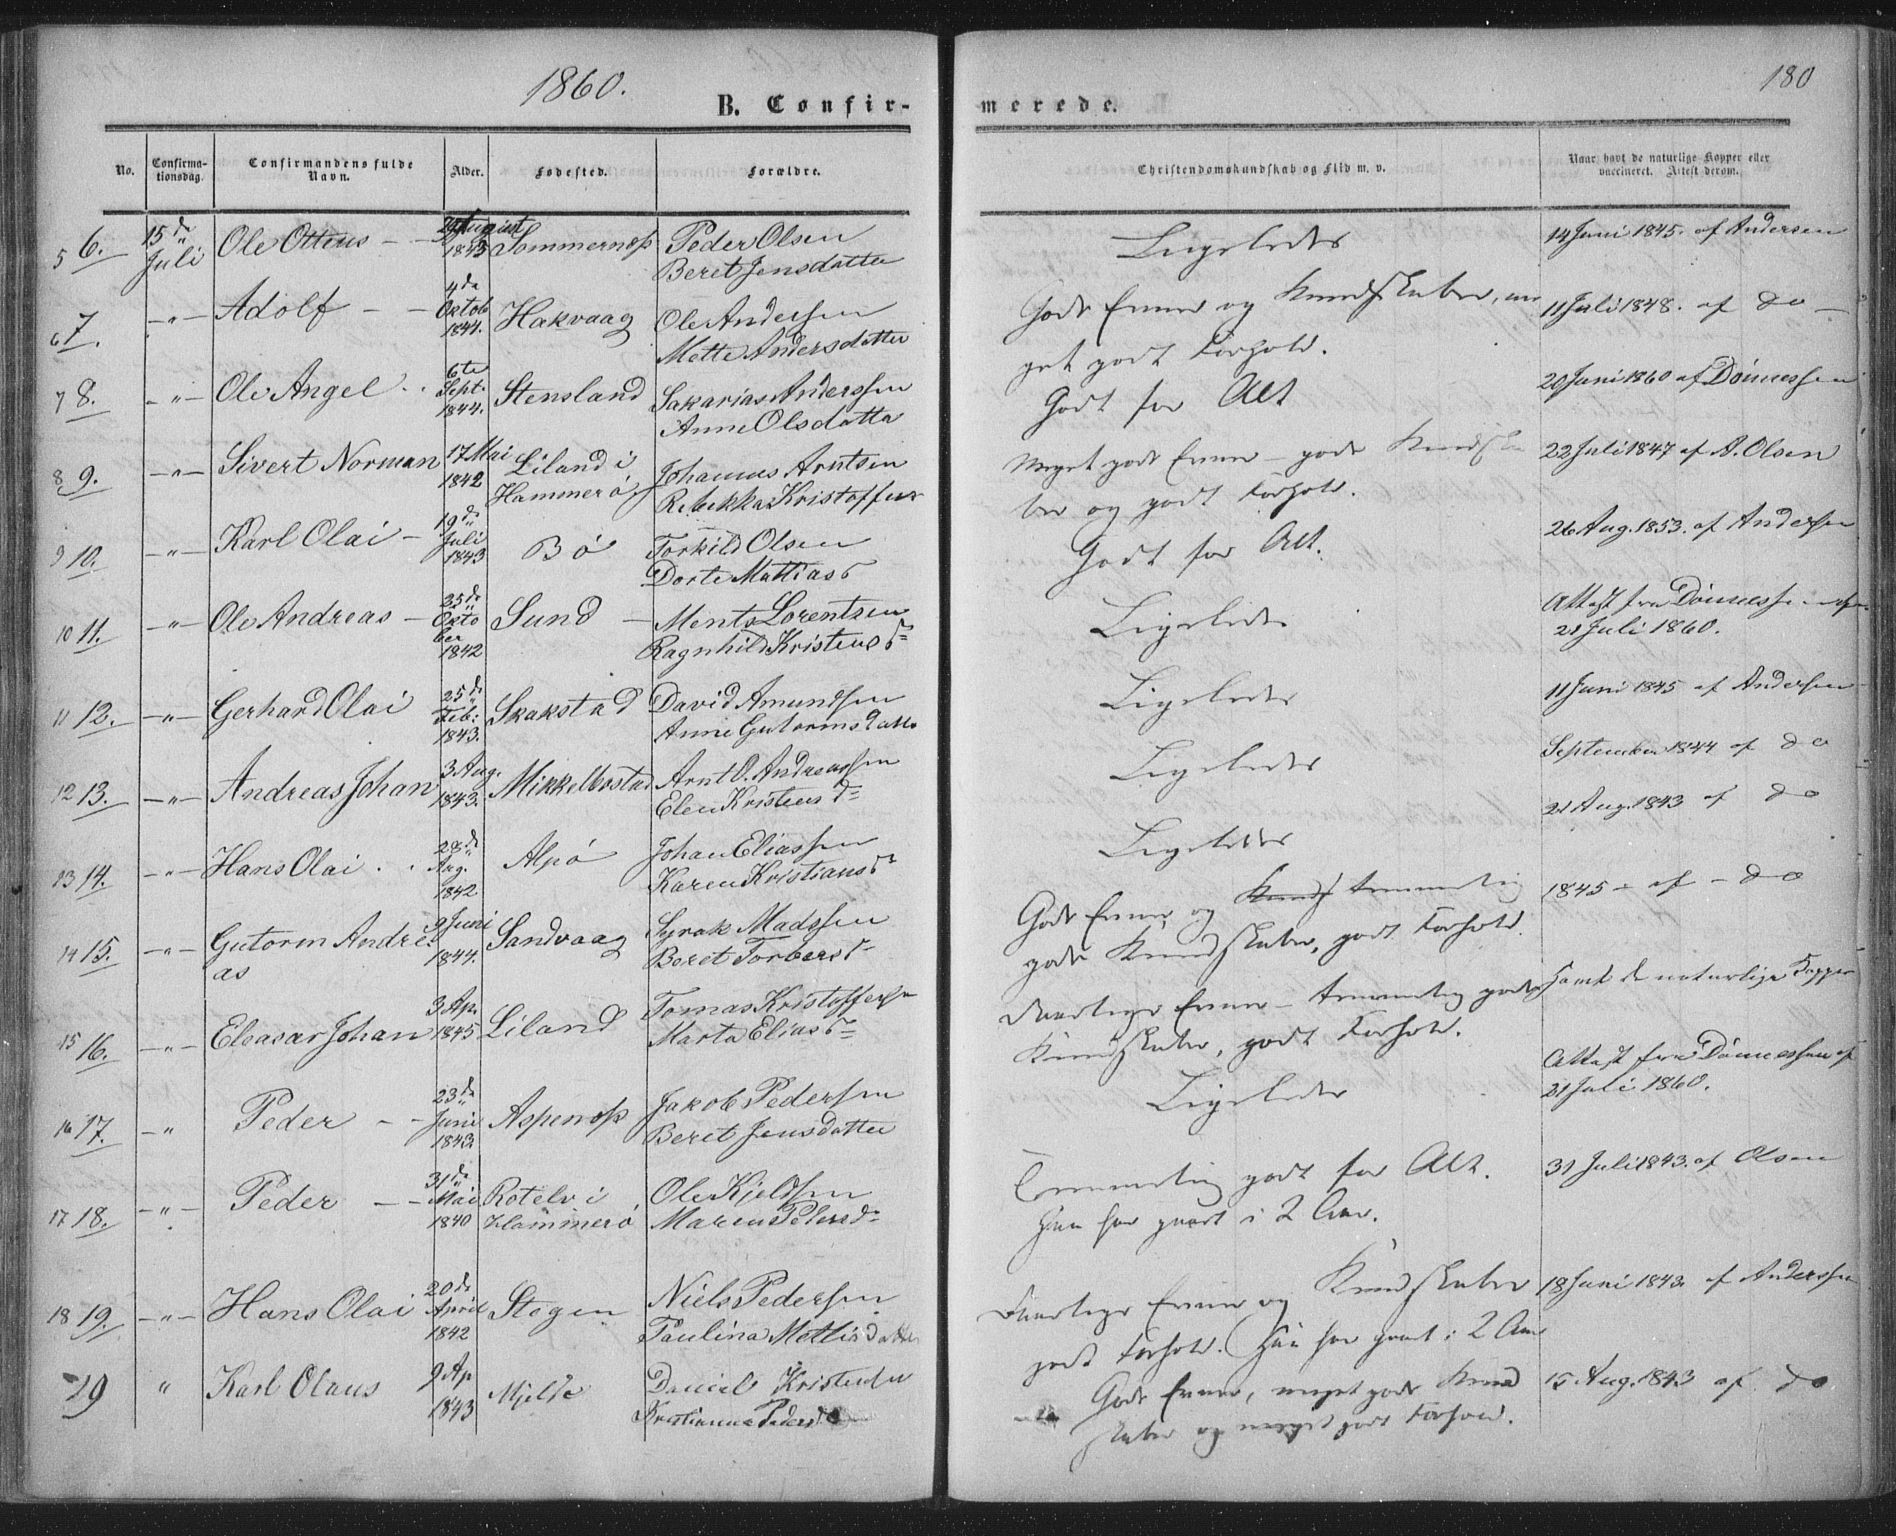 1860.
180
B. Confir-
merede.
No.
Confirma-
tionsdag.
Confirmandens fulde
Navn.
Alder.
Fødested.
Forældre.
Christendomskundskab og Flid m. v.
Naar havt de naturlige Kopper eller
vaccineret. Attest derom.
5 6. 15de Juli Ole Otteus August 1843 Sommernæss Peder Olsen
Beret Jensdatter
Ligeledes
14 Juni 1845. af Andersen
6 7. -"- Adolf 4de Oktob 1844. Hakvaag Ole Andersen
Mette Andersdatter
Gode Evner og Kundskaber, me
get godt Forhold.
11 Juli 1848. af do
7 8. -"- Ole Angel 6te Sept. 1844. Stensland Sakarias Anderssen
Anne Olsdatter
Godt for Alt
20 Juni 1860 af Dønnessen
8 9. -"- Sivert Norman 17 Mai 1842 Liland i Hammerø Johannes Arntsen
Rebekka Kristoffers
Meget gode Evner - gode Kundska
ber og godt Forhold.
22 Juli 1847 af A. Olsen
9 10. -"- Karl Olai 19de Juli 1843 Bø Torkild Olsen
Dorte Mattiasd
Godt for Alt.
26 Aug. 1853. af Andersen
10 11. -"- Ole Andreas 25de Okto
ber
1842 Sund Ments Lorentsen
Ragnhild Kristensd
Ligeledes
Attest fra Dønnessen af
21 Juli 1860.
11 12. -"- Gerhard Olai 25de Feb: 1843. Skakstad David Amundsen
Anne Gutormsdatter
Ligeledes
11 Juni 1845 af Andersen
12 13. -"- Andreas Johan 3 Aug. 1843. Mikkelbostad Arnt O. Andreassen
Elen Kristensd
Ligeledes
September 1844 af do
13 14. -"- Hans Olai 28de Aug. 1842 Alpø Johan Eliassen
Karen Kristiansd
Ligeledes
21 Aug. 1843 af do
14 15. -"- Gutorm Andre
as 9 Juni 1844. Sandvaag Syrak Madssen
Beret Torbersd
Gode Evner og Kunds temmelig
gode Kundskaber, godt Forhold.
1845 - af - do
15 16. -"- Eleasar Johan 3 Ap. 1845 Liland Tomas Kristoffersen
Marta Eliasd
Maadelige Evner - temmelig gode
Kundskaber, godt Forhold.
havt de naturlige Kopper
16 17. -" Peder 23de Juni 1843 Aspenæss Jakob Pedersen
Beret Jensdatter
Ligeledes
Attest fra Dønnessen af
21 Juli 1860.
17 18. -"- Peder 31de Mai 1840 Rotelv i Hammerø Ole Kjeldsen
Maren Petersd
Temmelig godt for Alt.
Han har gaaet i 2 Aar.
31 Juli 1843. af Olsen
18 19. -"- Hans Olai 20de April 1842 Stegen Niels Pedersen
Paulina Mettisdatter
Maadelige Evner og Kundskaber
godt Forhold. Han har gaaet i 2 Aar
18 Juni 1843. af Anderssen
29 " Karl Olaus 9 Ap 1843 Mjelde Daniel Kristensen
Kristianna Pedersd
Gode Evner, meget gode Kund
skaber og meget godt Forhold.
15 Aug. 1843 af do